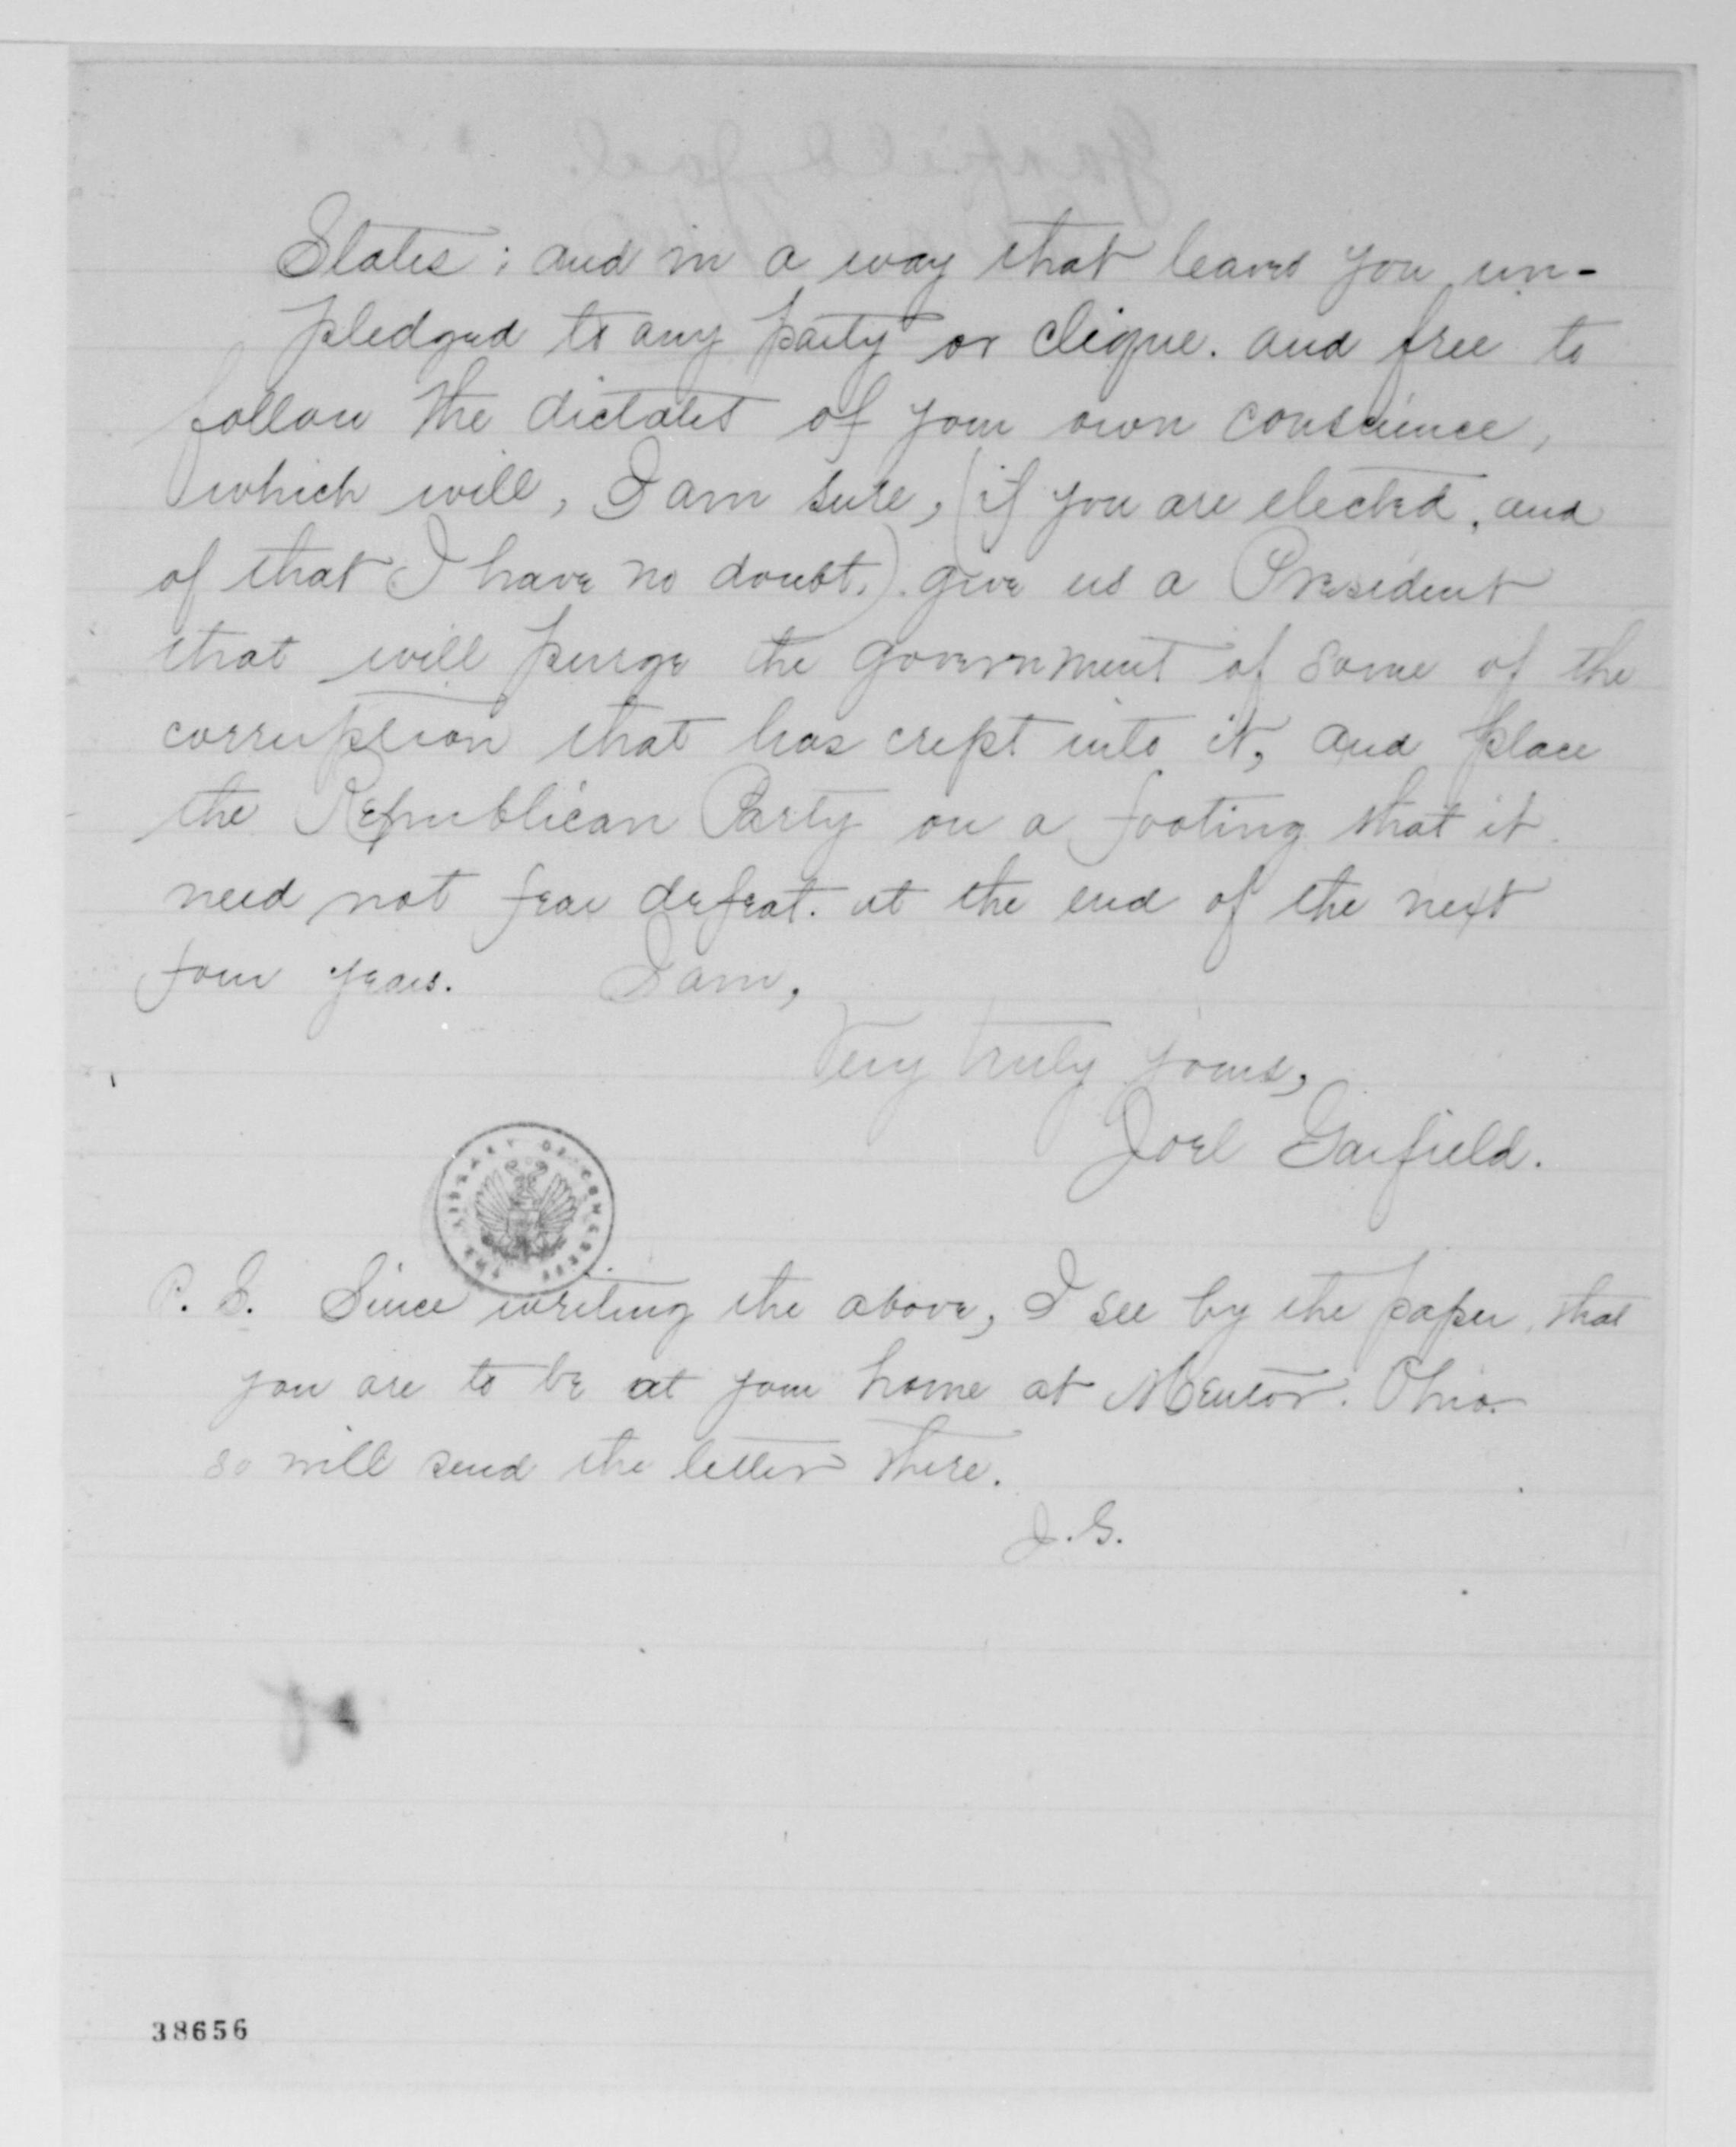 States; and in a way that leaves you un-
pledged to any party or clique. and free to
follow the dictates of your own conscience,
which will, I am sure, (if you are elected, and
of that I have no doubt.) give us a President
that will purge the government of some of the
corruption that has crept into it, and place
the Republican Party on a footing that it
need not fear defeat. at the end of the next
four years. I am,
Very truly yours,
Joel Garfield.
THE LIBRARY OF CONGRESS
P. S. Since writing the above, I see by the paper, that
you are to be at your home at Mentor. Ohio.
so will send the letter there.
J. G.
38656